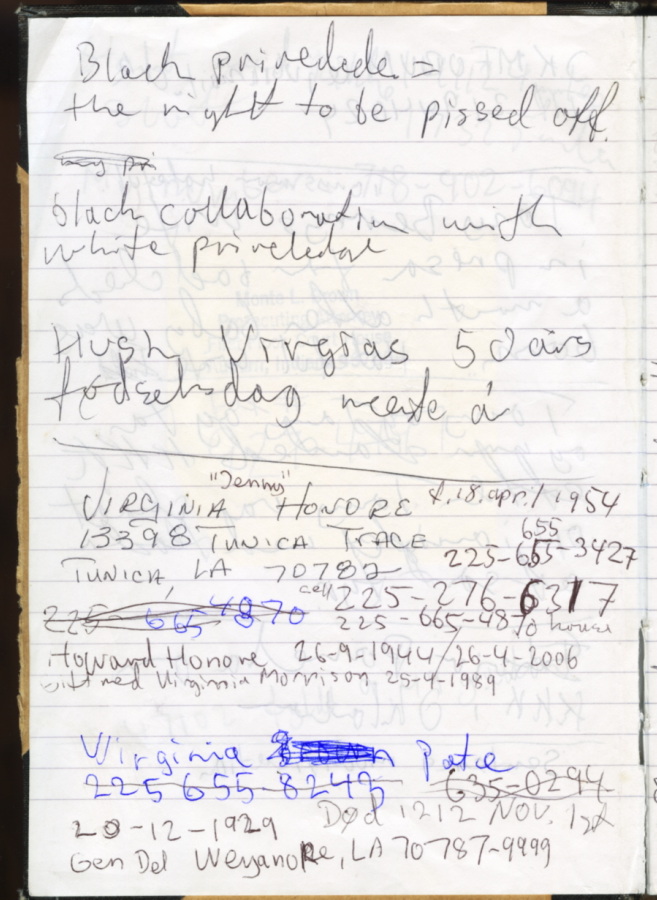 Black priveledde =
the right to be pissed off.
my pri
black collaboration with
white priveledge
Hush Virgias 50 års
fødselsdag næste år
"Jenny"
VIRGINIA HONORE f. 18. apr. / 1954
13398 TUNICA TRACE 655
225-655-3427
TUNICA, LA 70782
cell 225-276-6317
225-665-4870
225-665-4870 house
Howard Honore 26-9-1944 / 26-4-2006
married Virginia Morrison 25-9-1989
Virginia Pate
225 655-8243 635-0294
Død 1212 NOV. 1st
20-12-1929
Gen Del Weyanoke, LA 70787-9999